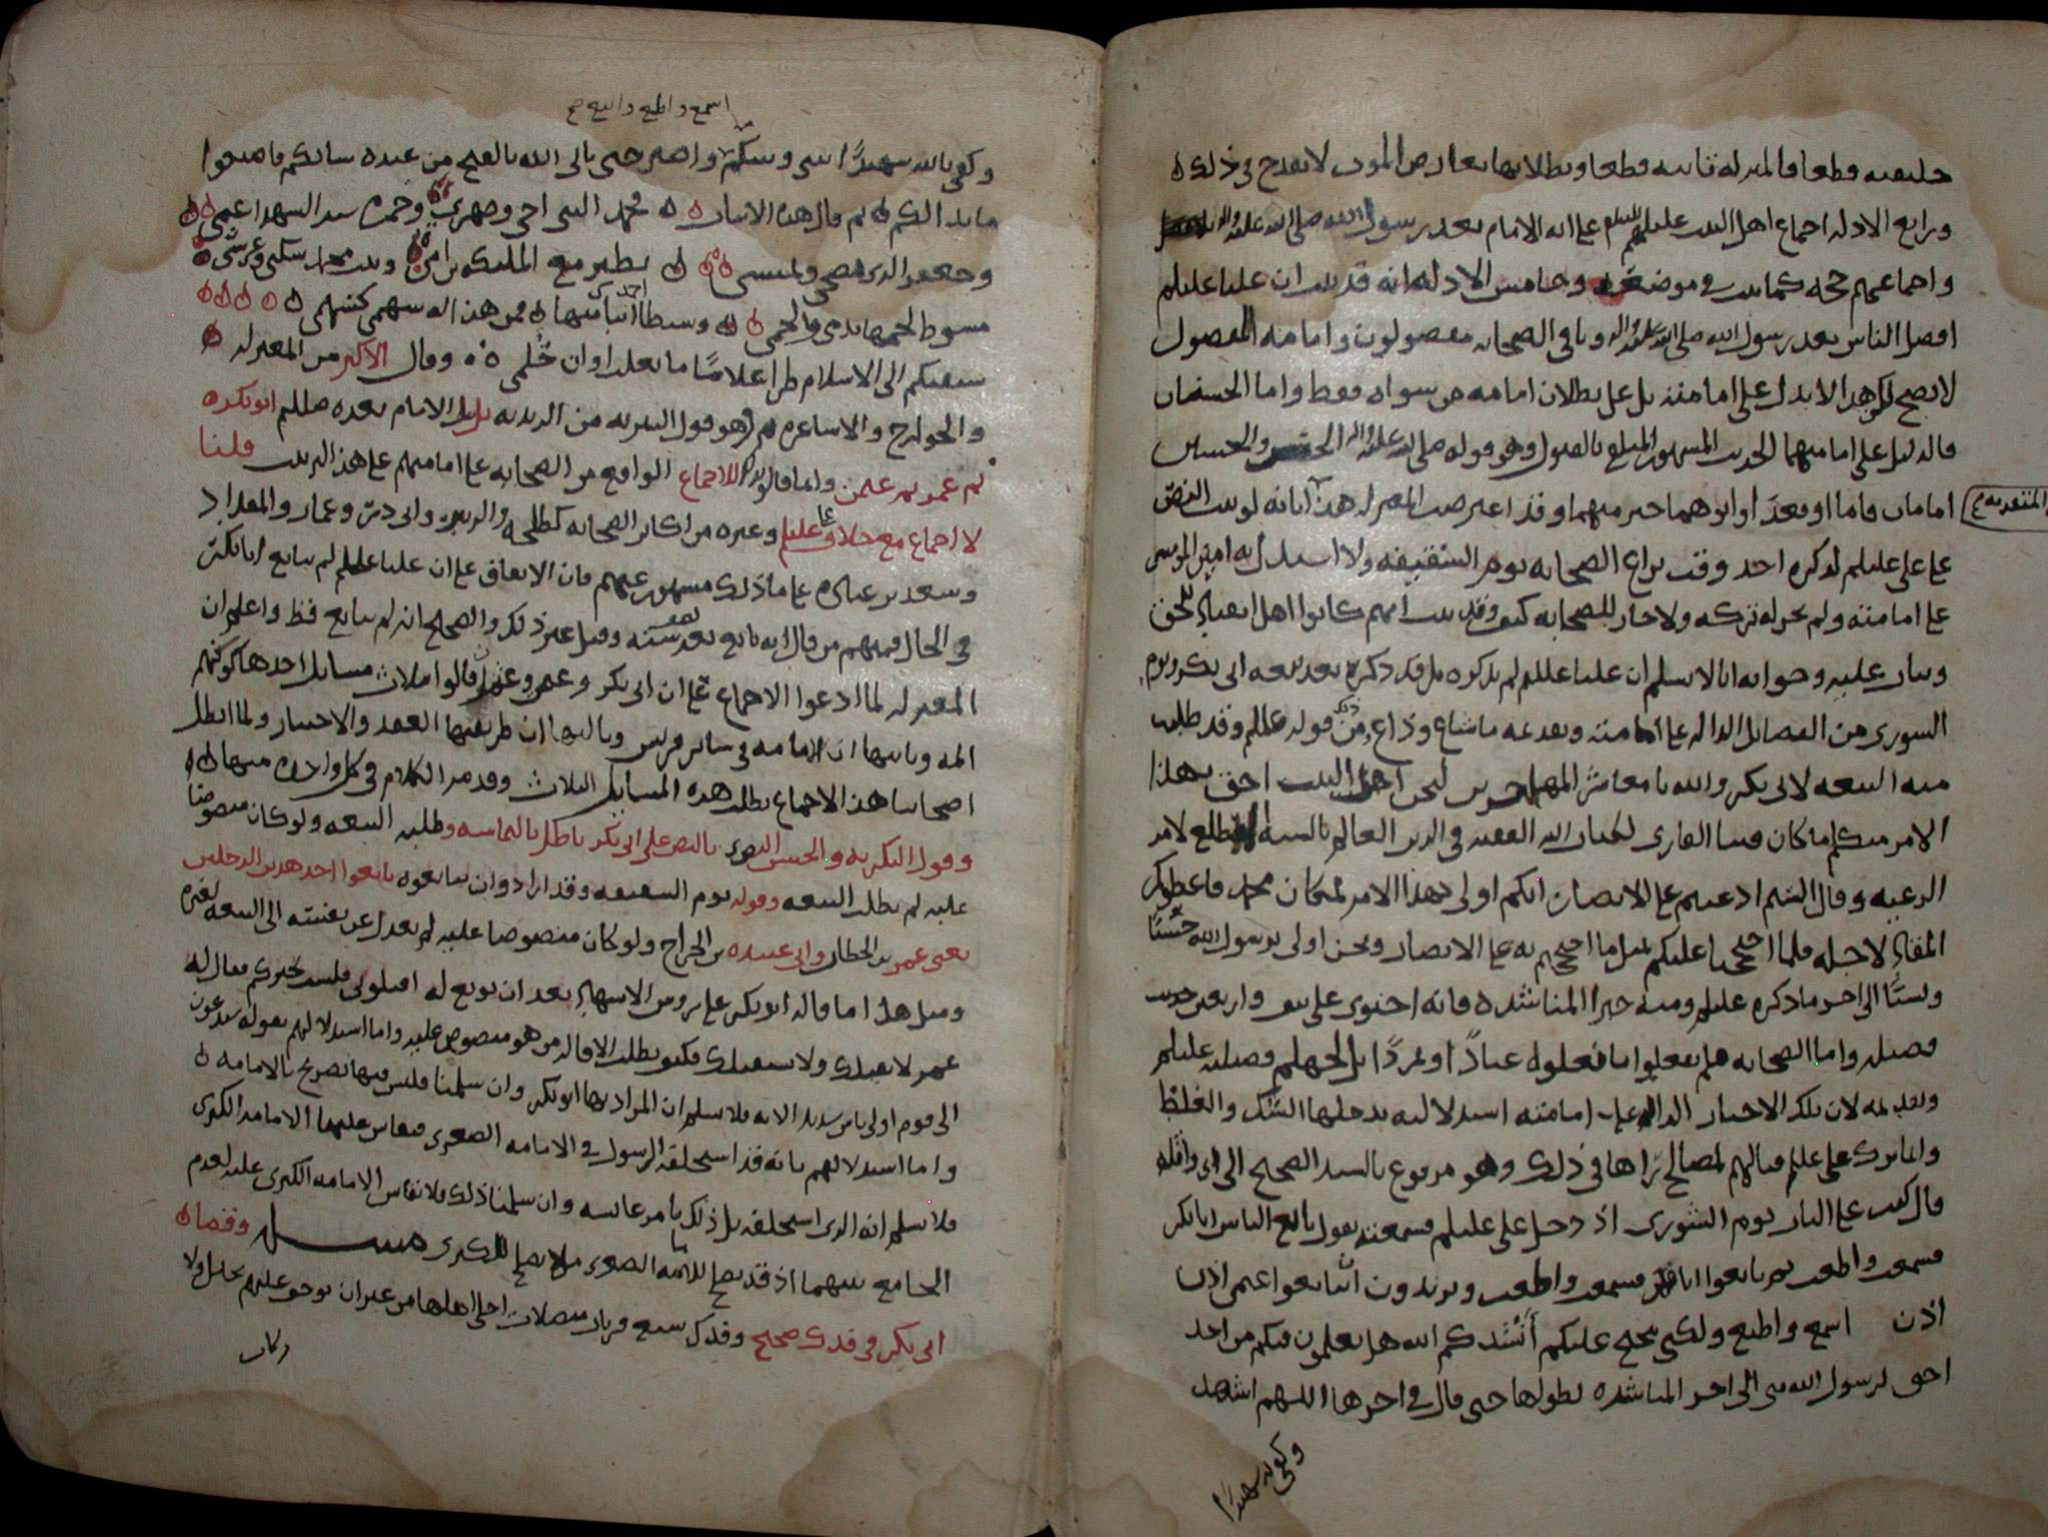 خليفته قطعا فالمنزلة ثابتة قطعا وبطلانها بعارض الموت لا يقدح في ذلك
ورابع الادلة اجماع اهل البيت عليهم السلام على انه الامام بعد رسول الله صلى الله عليه واله
واجماعهم حجة كما ثبت في موضعه وخامس الادلة انه قد ثبت ان عليا عليلم
افضل الناس بعد رسول الله صلى الله عليه واله وباقي الصحابة مفضولون وامامة المفضول
لا تصح لكن هذا لا يدل على امامته بل على بطلان امامة من سواه فقط واما الحسنان
فالدليل على امامتهما الحديث المشهور المتلقى بالقبول وهو قوله صلى الله عليه واله الحسن والحسين
امامان قاما او قعدا وابوهما خير منهما وقد اعترضت المعتزلة هذا بانه لو ثبت النص
على علي عليلم لذكره احد وقت نزاع الصحابة يوم السقيفة ولاستدل به امير المومنين
على امامته ولم يجز له تركه ولا جاز للصحابة كيف وقد ثبت انهم كانوا اهل اتباع للحق
وثبات عليه وجوابه انا لا نسلم ان عليا عليلم لم يذكره بل قد ذكره بعد بيعة ابي بكر ويوم
الشورى من الفضائل الدالة على امامته وبعده ما شاع وذاع من ذلك قوله عليلم وقد طلبت
منه البيعة لابي بكر والله يا معاشر المهاجرين لنحن اهل البيت احق بهذا
الامر منكم ما كان فينا القاري لكتاب الله الفقيه في الدين العالم بالسنة المضطلع لامر
الرعية وقال الستم ادعيتم على الانصار انكم اولى بهذا الامر لمكان محمد فاعطوكم
المقادة لاجله فلما احتججنا عليكم بمثل ما احتججتم به على الانصار ونحن اولى برسول الله حيا
وميتا الى اخر ما ذكره عليلم ومنه خبر المناشدة فانه احتوى على نيف واربعين حديث
فضيلة واما الصحابة فلم يفعلوا ما فعلوه عنادا او تمردا بل لجهلهم فضيلة عليلم
وتقديمه لان تلك الاخبار الدالة على امامته استدلالية يدخلها الشك والغلط
وانما ترك علي عليلم قتالهم لمصالح رآها في ذلك وهو مرفوع بالسند الصحيح الى ابي واثلة
قال كنت على الباب يوم الشورى اذ دخل علي عليلم فسمعته يقول بايع الناس ابا بكر
فسمعت واطعت ثم بايعوا ابا فسمعت واطعت وتريدون ان تبايعوا عثمن اذن
اذن اسمع واطيع ولكني محتج عليكم أنشدكم الله هل تعلمون فيكم من احد
احق برسول الله مني الى اخر المناشدة بطولها حتى قال في اخرها اللهم اشهد
وكفى به شهيدا
اسمع واطيع واتبع صح
وكفى بالله شهيدًا بيني وبينكم واصبر حتى ياتي الله بالفتح من عنده سالكم فاصنعوا
ما بدا لكم ثم قال هذه الابيات محمد النبي اخي وصهري وحمزة سيد الشهدا عمي
وجعفر الذي يضحي ويمسي يطير مع الملائكة بن امي وبنت محمد سكني وعرسي
مسوط لحمها بدمي ولحمي وسبطا احمد ابناي منها فمن هذا له سهم كسهمي
سبقتكم الى الاسلام طرا غلامًا ما بلغت اوان حُلمي وقال الاكثر من المعتزلة
والخوارج والاشاعرة ثم وهو قول البترية من الزيدية بل الامام بعده صللم ابو بكر
ثم عمر ثم عثمن وانما قالوا للاجماع الواقع من الصحابة على امامتهم على هذا الترتيب قلنا
لا اجماع مع خلاف علي عليلم وغيره من اكابر الصحابة كطلحة والزبير وابي ذر وعمار والمقداد
وسعد بن عبادة على ما ذلك مشهور عنهم فان الاتفاق على ان عليا عليلم لم يبايع ابا بكر
في الحال فمنهم من قال انه بايع بعد ستة وقيل غير ذلك والصحيح انه لم يبايع قط واعلم ان
المعتزلة لما ادعوا الاجماع على ان ابي بكر وعمر وعثمن قالوا ثلاث مسائل احدها كونهم
ائمة وثانيها ان الامامة في سائر قريش وثالثها ان طريقها العقد والاختيار ولما ابطل
اصحابنا هذا الاجماع بطلت هذه المسائل الثلاث وقد مر الكلام في كل واحدة منها
وقول البكرية والحسن البصري بالنص على ابي بكر باطل بالتماسه وطلبه البيعة ولو كان منصوصا
عليه لم يطلب البيعة وقوله يوم السقيفة وقد ارادوا ان يبايعوه بايعوا احد هذين الرجلين
يعني عمر بن الخطاب وابي عبيدة بن الجراح ولو كان منصوصا عليه لم يعدل عن نفسه الى البيعة لغيره
ومثل هذا ما قاله ابو بكر على رؤس الاشهاد بعد ان بويع له اقيلوني فلست بخيركم فقال له
عمر لا نقيلك ولا نستقيلك فكيف يطلب الاقالة من هو منصوص عليه واما استدلالهم بقوله ستدعون
الى قوم اولي باس شديد الاية فلا نسلم ان المراد بها ابو بكر وان سلمنا فليس فيها تصريح بالامامة
واما استدلالهم بانه قد استخلفه الرسول في الامامة الصغرى فيقاس عليها الامامة الكبرى
فلا نسلم انه الذي استخلفه بل ذلك بامر عائشة وان سلمنا ذلك فلا تقاس الامامة الكبرى عليه لعدم
الجامع بينهما اذ قد يصلح للامامة الصغرى من لا يصلح للكبرى مسئلة وقضا
ابي بكر في فدك صحيح وفدك سبع قريات متصلات اجلي اهلها من غير ان يوجف عليهم بخيل ولا
ركاب